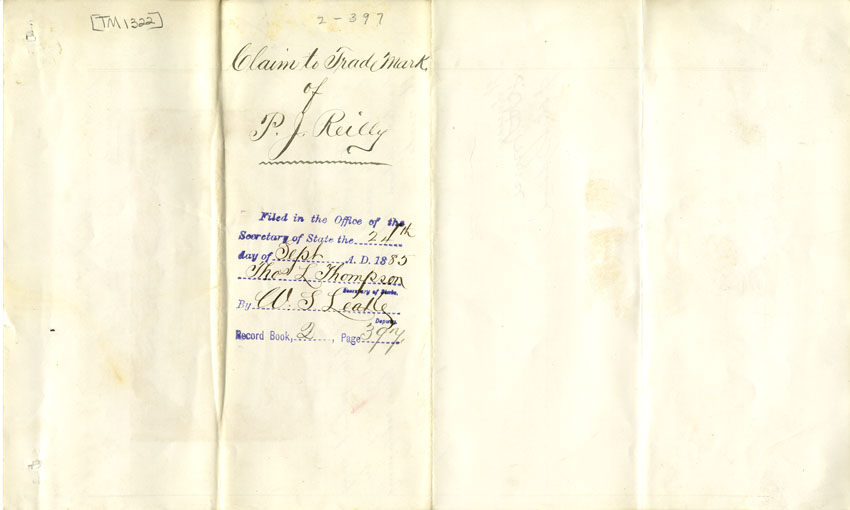 [TM1322]
2-397
Claim to Trade Mark
of
P. J. Reilly
Filed in the Office of the
Secretary of State the 24th
day of Sept A. D. 1885
Thos L Thompson
Secretary of State.
By W. S. Leake
Deputy.
Record Book, 2, Page 397